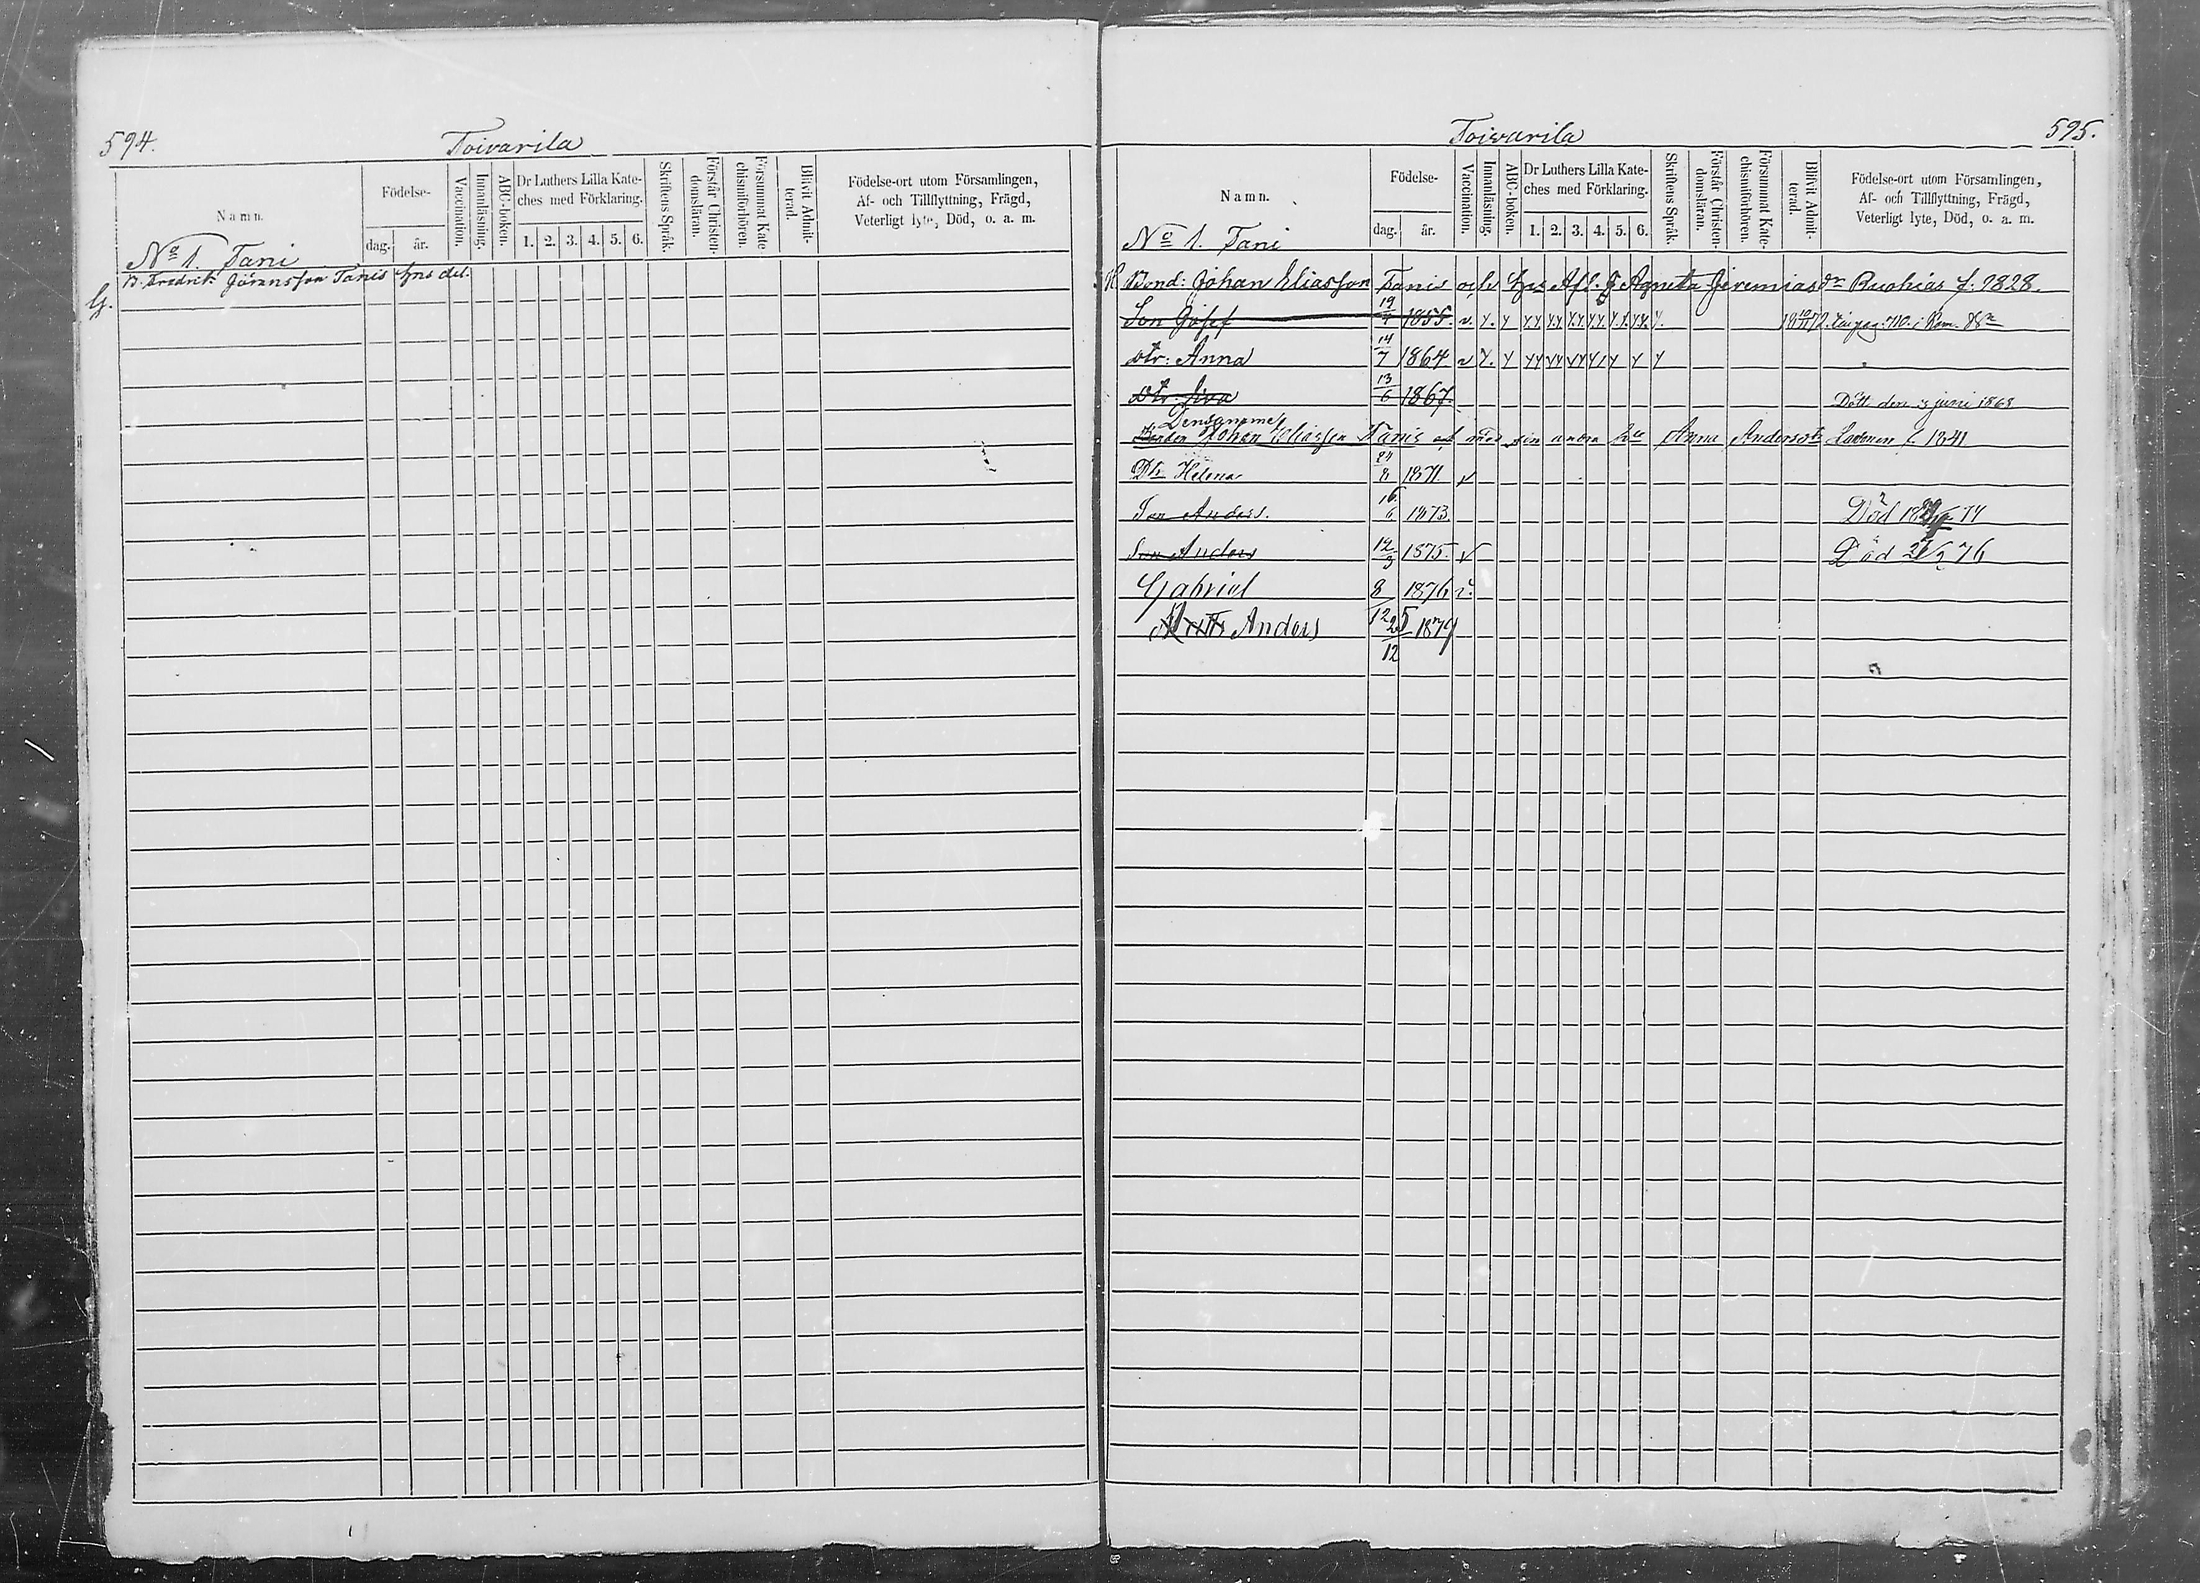 594.
Toivarila
Namn.
Födelse-
dag.
år.
Vaccination.
Innanläsning.
ABC-boken.
Dr Luthers Lilla Kate-
ches med Förklaring.
1. 2. 3. 4. 5. 6.
Skriftens Språk.
Förstår Christen-
domsläran.
Försummat Kate-
chismiförhören.
Blifvit Admit-
terad.
Födelse-ort utom Församlingen,
Af- och Tillflyttning, Frägd,
Veterligt lyte, Död, o. a. m.
No 1. Tani
B. Fredrik Göransson Tanis hns del.
G.
Toivarila
595.
Namn.
Födelse-
dag.
år.
Vaccination.
Innanläsning.
ABC-boken.
Dr Luthers Lilla Kate-
ches med Förklaring.
1. 2. 3. 4. 5. 6.
Skriftens Språk.
Förstår Christen-
domsläran.
Försummat Kate-
chismiförhören.
Blifvit Admit-
terad.
Födelse-ort utom Församlingen,
Af- och Tillflyttning, Frägd,
Veterligt lyte, Död, o. a. m.
No 1. Tani
Bond: Johan Eliasson Tanis och hns Afl. Agneta Jeremiasdr Ruohias f. 1828.
Son Josef 19/4 1855. v.
Dtr: Anna 14/7 1864 v
Dtr: 13/6 1867. Dött den juni 1868
Densamme
Bonden Johan Eliasson Tanis med sin andra Anna Andersdr f. 1841
Dtr Helena 8 1871. v
Son Anders. 16/6 1873. Död 74
Son Anders 12/3 1875. v Död 76
Gabriel 8/12 1876 v.
Anders 25/12 1879